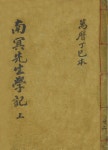 萬曆丁巳本
南冥先生學記 上